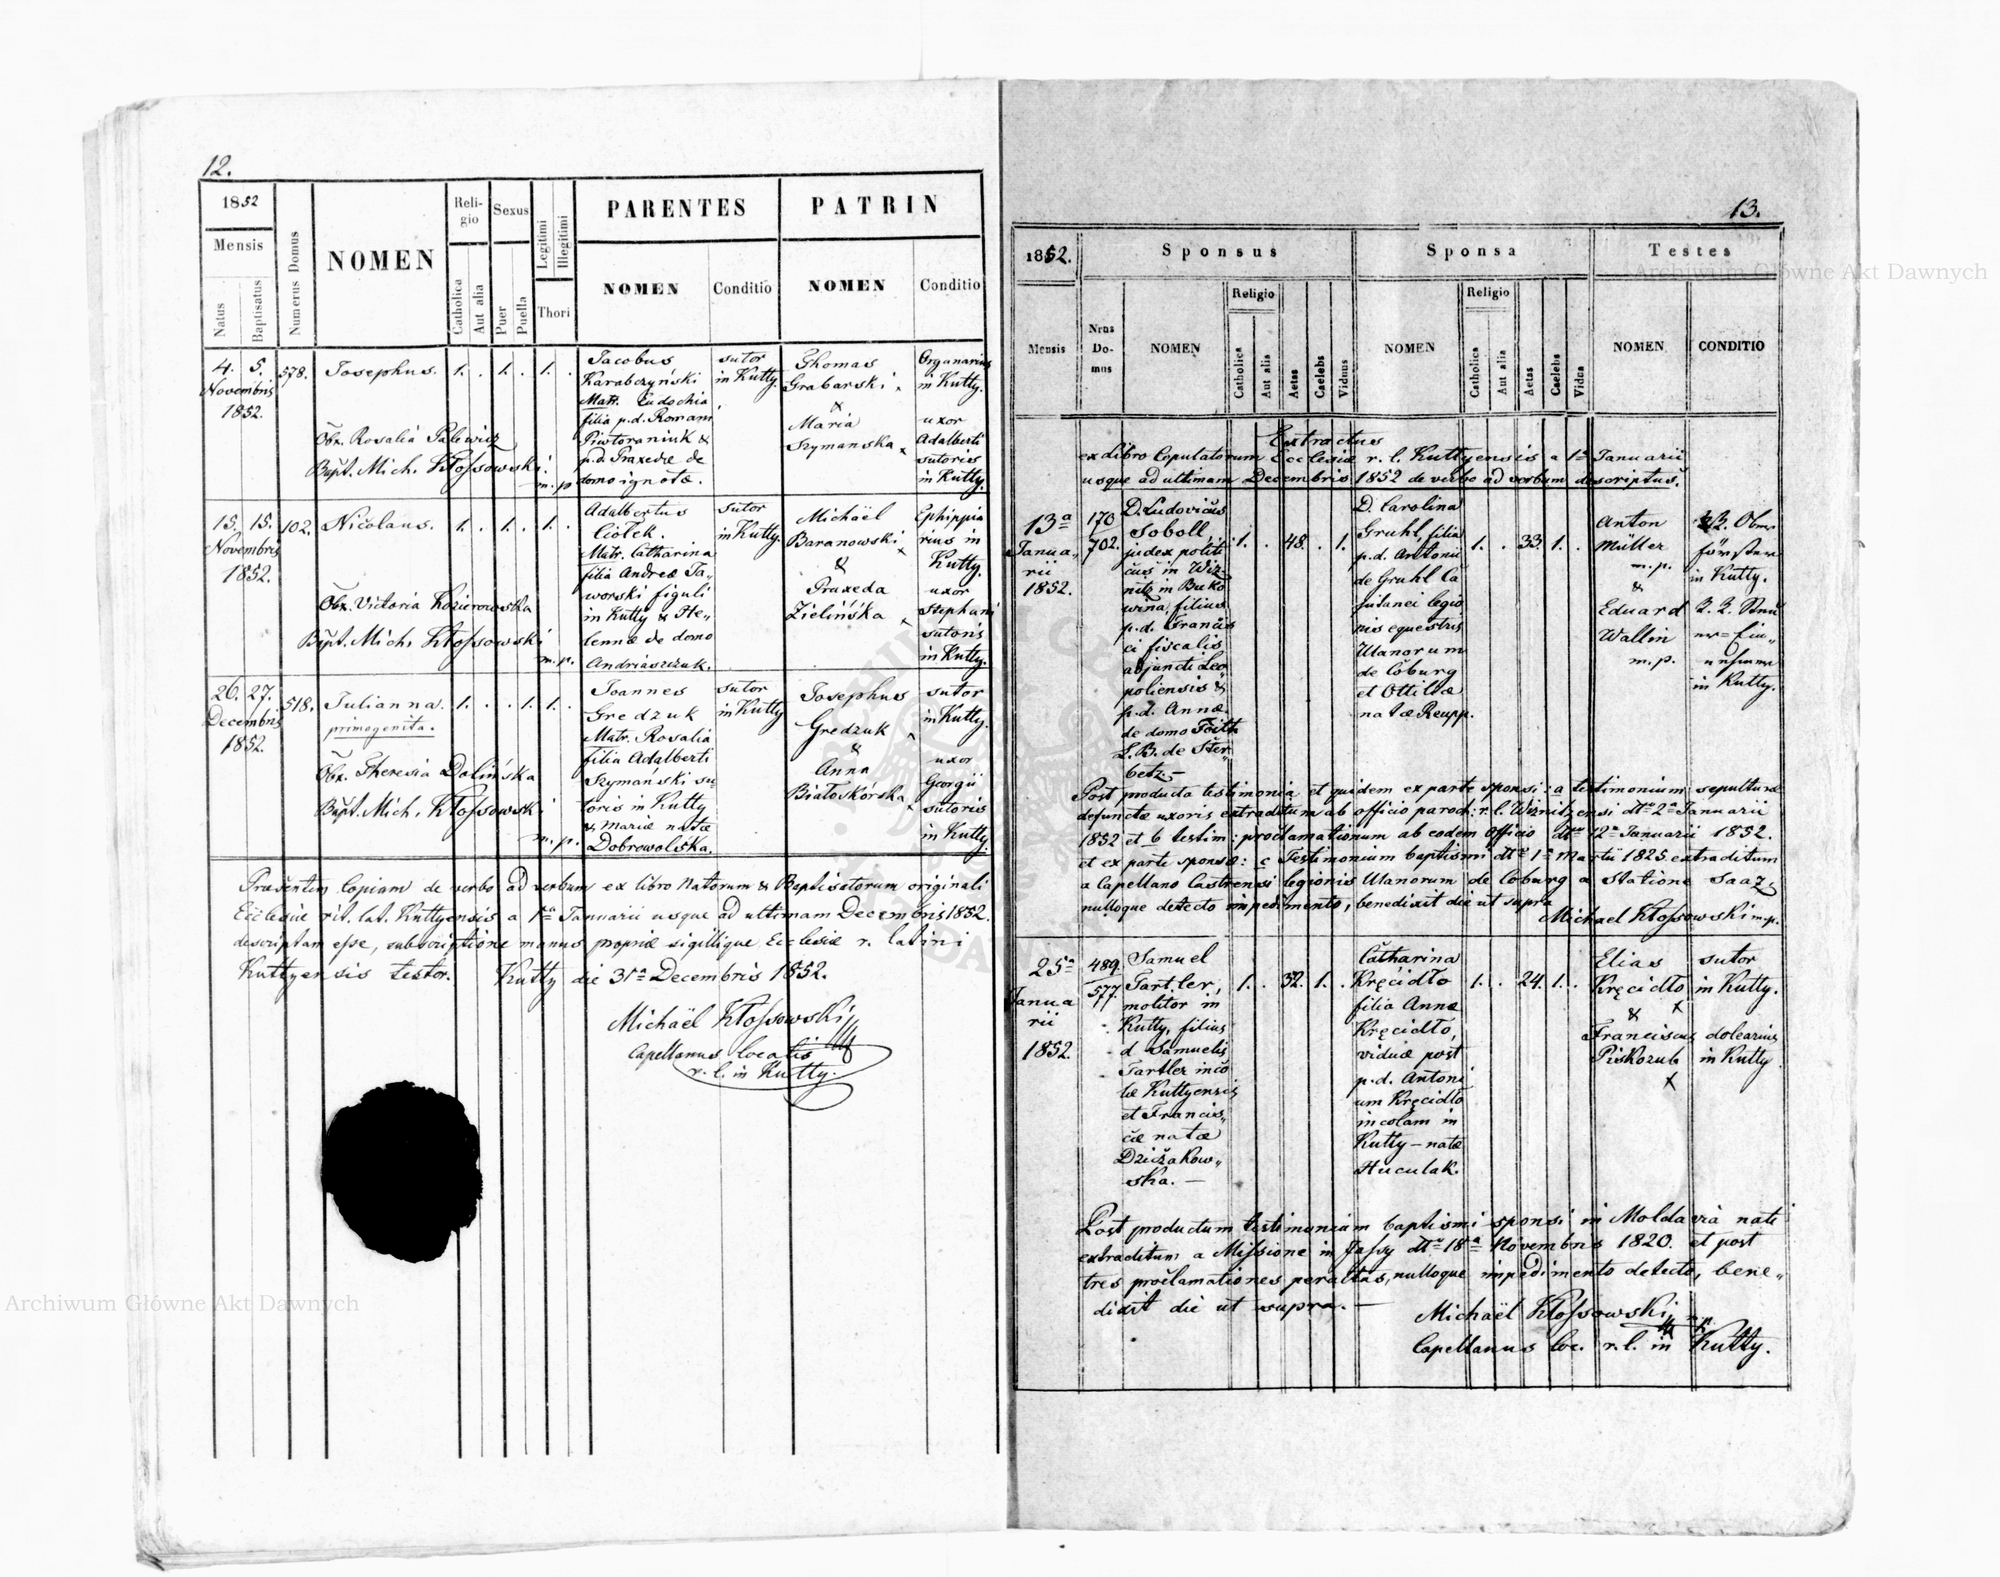 12.
1852
Mensis
Natus
Baptisatus
Numerus Domus
NOMEN
Religio
Catholica
Aut alia
Sexus
Puer
Puella
Legitimi
Illegitimi
Thori
PARENTES
NOMEN
Conditio
PATRIN
NOMEN
Conditio
4. 5.
Novembris
1852.
578.
Josephus.
1. . 1. . 1. .
Obx. Rosalia Palewicz
Bapt. Mich. Kłossowski
m.p.
Jacobus
Karabczyński
Matr. Eudochia
filia p.d. Romani
Piwtoraniuk &
p.d. Praxedæ de
domo ignotæ.
sutor
in Kutty.
Thomas
Grabarski x
&
Maria
Szymanska x
Organarius
in Kutty.
uxor
Adalberti
sutoris
in Kutty.
15. 15.
Novembris
1852.
102.
Nicolaus.
1. . 1. . 1. .
Obx. Victoria Kozierowska
Bapt. Mich. Kłossowski
m.p.
Adalbertus
Ciołek.
Matr. Catharina
filia Andreæ Ja„
worski figuli
in Kutty & He„
lennæ de domo
Andriaszczuk.
sutor
in Kutty.
Michaël
Baranowski x
&
Praxeda
Zielińska x
Ephippia
rius in
Kutty.
uxor
Stephani
sutoris
in Kutty.
26. 27.
Decembris
1852.
518.
Julianna.
primogenita.
1. . . 1. 1. .
Obx. Theresia Dolińska
Bapt. Mich. Kłossowski
m.p.
Joannes
Gredzuk
Matr. Rosalia
filia Adalberti
Szymański su„
toris in Kutty
& Mariæ natæ
Dobrowolska.
sutor
in Kutty
Josephus
Gredzuk x
&
Anna
Białoskórska x
sutor
in Kutty.
uxor
Georgii
sutoris
in Kutty.
Præsentem Copiam de verbo ad verbum ex libro Natorum & Baptisatorum originali
Ecclesiæ rit. lat. Kuttyensis a 1ma Januarii usque ad ultimam Decembris 1852.
descriptam esse, subscriptione manus propriæ sigillique Ecclesiæ r. latini
Kuttyensis testor. Kutty die 31a Decembris 1852.
Michaël Kłossowski
Capellanus localis
r. l. in Kutty.
13.
1852.
Mensis
Sponsus
Nrus
Do-
mus
NOMEN
Religio
Catholica
Aut alia
Aetas
Caelebs
Viduus
Sponsa
NOMEN
Religio
Catholica
Aut alia
Aetas
Caelebs
Vidua
Testes
NOMEN
CONDITIO
Extractus
ex libro Copulatorum Ecclesiæ r. l. Kuttyensis a 1a Januarii
usque ad ultimam Decembris 1852 de verbo ad verbum descriptus.
13a
Janua„
rii
1852.
170
702.
D. Ludovicus
Soboll,
judex politi
cus in Wiz„
nitz in Buko
wina, filius
p.d. Francis
ci fiscalis
adjuncti Leo
poliensis &
p.d. Annæ
de domo Foith
L. B. de Ster
betz. —
1. . 48. . 1.
D. Carolina
Gruhl, filia
p.d. Antonii
de Gruhl Ca
pitanei legio
nis equestris
Ulanorum
de Coburg
et Ottiliæ
natæ Reupp.
1. . 33. 1. .
Anton
Müller
m.p.
&
Eduard
Wallin
m.p.
förster
in Kutty.
in Kutty.
Post producta testimonia et quidem ex parte sponsi: a testimonium sepulturæ
defunctæ uxoris extraditum ab officio paroch: r. l. Wiznitzensi dto 2a Januarii
1852 et b testim: proclamationum ab eodem officio dto 12a Januarii 1852.
et ex parte sponsæ: c Testimonium baptismi dto 1a Martii 1825 extraditum
a Capellano Castrensi legionis Ulanorum de Coburg a statione Saaz,
nulloque detecto impedimento, benedixit die ut supra
Michael Kłossowski m.p.
25a
Janua
rii
1852.
489.
577.
Samuel
Tartler,
molitor in
Kutty, filius
d. Samuelis
Tartler inco
læ Kuttyensis
et Francis„
cæ natæ
Dziczakow„
ska. —
1. . 32. 1. .
Catharina
Kręcidło
filia Annæ
Kręcidło,
viduæ post
p.d. Antoni
um Kręcidło
incolam in
Kutty — natæ
Huculak.
1. . 24. 1. .
Elias
Kręcidło
x
&
Franciscus
Piskozub
x
sutor
in Kutty.
dolearius
in Kutty
Post productum testimonium baptismi sponsi in Moldavia nati
extraditum a Missione in Jassy dto 18a Novembris 1820. et post
tres proclamationes peractas, nulloque impedimento detecto, bene„
dixit die ut supra. —
Michaël Kłossowski m.p.
Capellanus loc. r. l. in Kutty.
Archiwum Główne Akt Dawnych
Archiwum Główne Akt Dawnych